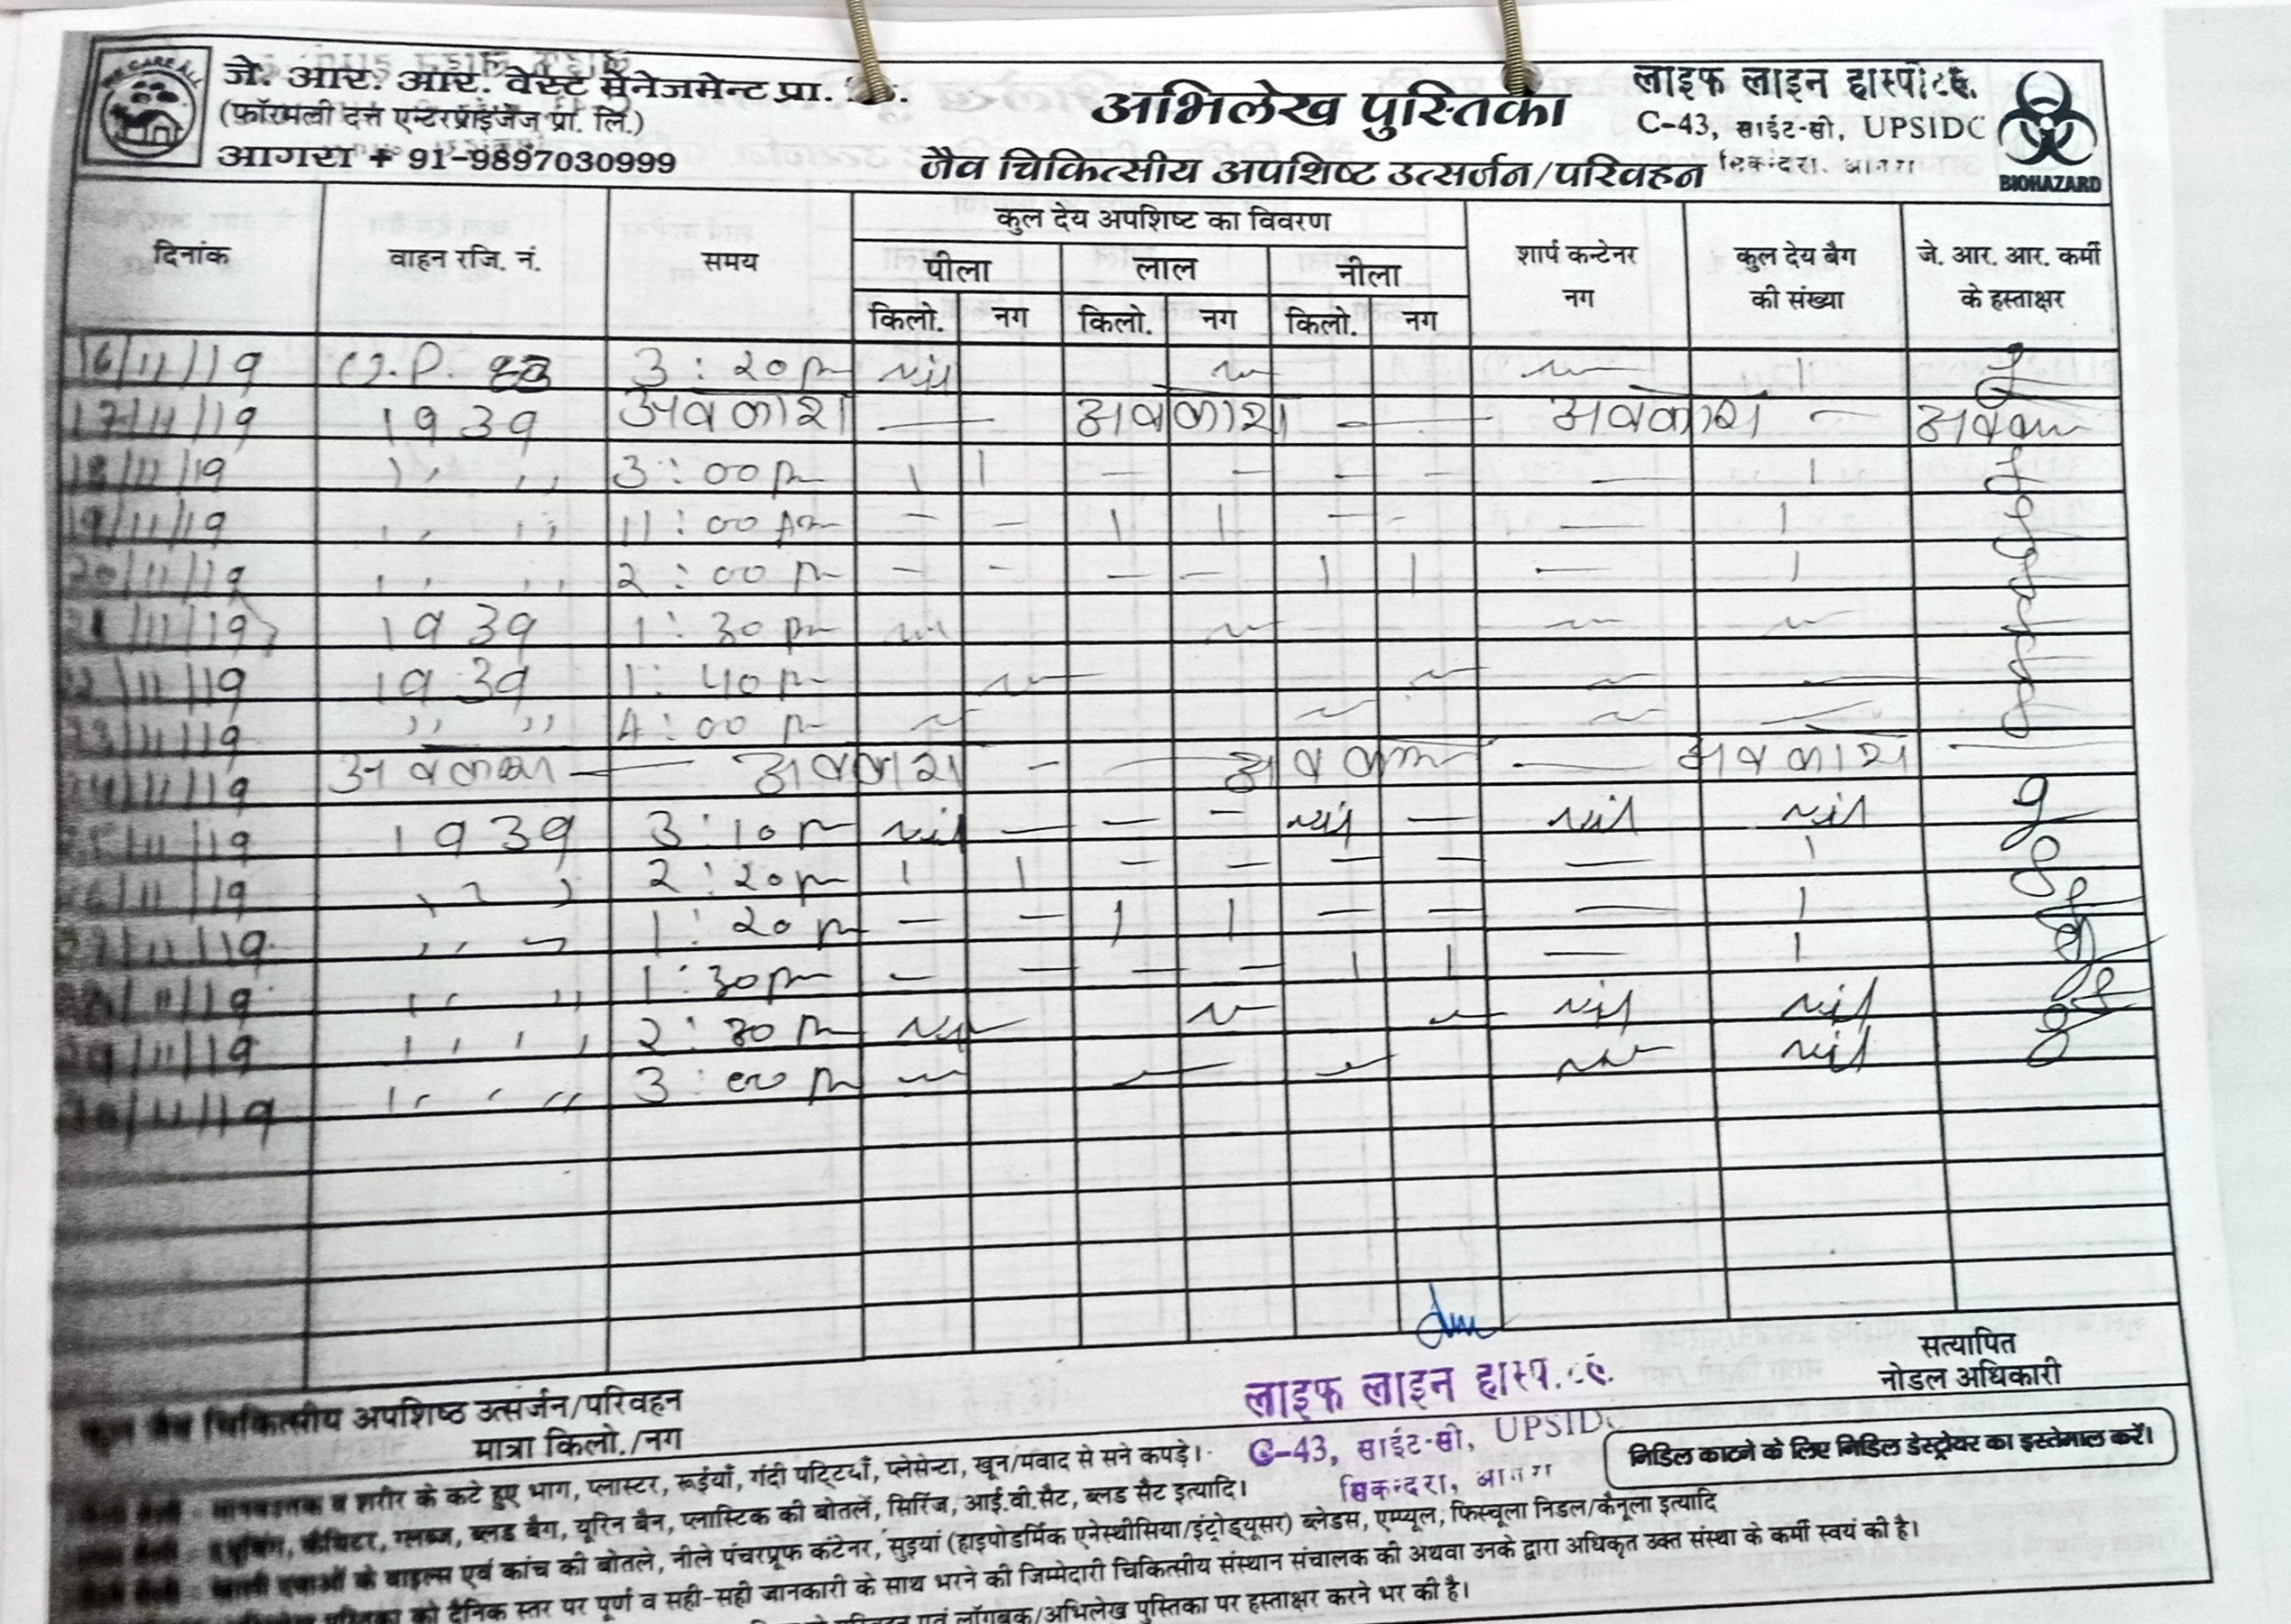 WE CARE ALL
जे. आर. आर. वेस्ट मेनेजमेन्ट प्रा.
(फॉरमली दत्त एन्टरप्राइजेज प्रा. लि.)
आगरा + 91-9897030999
अभिलेख पुस्तिका
जैव चिकित्सीय अपशिष्ट उत्सर्जन/परिवहन
लाइफ लाइन
C-43, साईट-सी, UPSIDC
सिकन्दरा,
BIOHAZARD
दिनांक वाहन रजि. नं. समय कुल देय अपशिष्ट का विवरण शार्प कन्टेनर नग कुल देय बैग की संख्या जे. आर. आर. कर्मी के हस्ताक्षर
पीला लाल नीला
किलो. नग किलो. नग किलो. नग
16/11/19 U.P. 83 3:20 pm Nil 1
17/11/19 1939 अवकाश — अवकाश — अवकाश —
18/11/19 ,, ,, 3:00 pm 1 1 — — — — — 1
19/11/19 ,, ,, 11:00 Am — — 1 1 — — — 1
20/11/19 ,, ,, 2:00 pm — — — — 1 1 — 1
21/11/19 1939 1:30 pm
22/11/19 1939 1:40 pm
23/11/19 ,, ,, 4:00 pm
24/11/19 अवकाश — अवकाश — अवकाश — अवकाश —
25/11/19 1939 3:10 pm Nil — — — Nil — Nil Nil
26/11/19 ,, ,, 2:20 pm 1 1 — — — — — 1
27/11/19 ,, ,, 1:20 pm — — 1 1 — — — 1
28/11/19 ,, ,, 1:30 pm — — — — 1 1 — 1
29/11/19 ,, ,, 2:30 pm Nil Nil Nil
30/11/19 ,, ,, 3:00 pm Nil
सत्यापित
नोडल अधिकारी
चिकित्सीय अपशिष्ठ उत्सर्जन/परिवहन
मात्रा किलो./नग
लाइफ लाइन
C-43, साईट-सी, UPSIDC
सिकन्दरा,
निडिल काटने के लिए निडिल डेस्ट्रोयर का इस्तेमाल करें।
व शरीर के कटे हुए भाग, प्लास्टर, रूईयाँ, गंदी पट्टियाँ, प्लेसेन्टा, खून/मवाद से सने कपड़े।
ग्लब्ज, ब्लड बैग, यूरिन बैन, प्लास्टिक की बोतलें, सिरिंज, आई.वी.सैट, ब्लड सैट इत्यादि।
खाली दवाओं के वाइल्स एवं कांच की बोतले, नीले पंचरप्रूफ कंटेनर, सुइयां (हाइपोडर्मिक एनेस्थीसिया/इंट्रोड्यूसर) ब्लेडस, एम्प्यूल, फिस्चूला निडल/कैनूला इत्यादि
को दैनिक स्तर पर पूर्ण व सही-सही जानकारी के साथ भरने की जिम्मेदारी चिकित्सीय संस्थान संचालक की अथवा उनके द्वारा अधिकृत उक्त संस्था के कर्मी स्वयं की है।
परिवहन एवं लॉगबुक/अभिलेख पुस्तिका पर हस्ताक्षर करने भर की है।